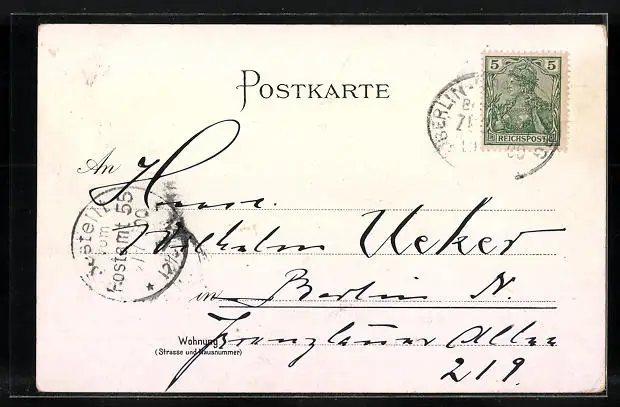 POSTKARTE
5 5
REICHSPOST
BERLIN
An Herrn
Wilhelm Ueker
in Berlin N.
Wohnung
(Strasse und Hausnummer)
Prenzlauer Allee
219.
Bestellt
vom
Postamt 55